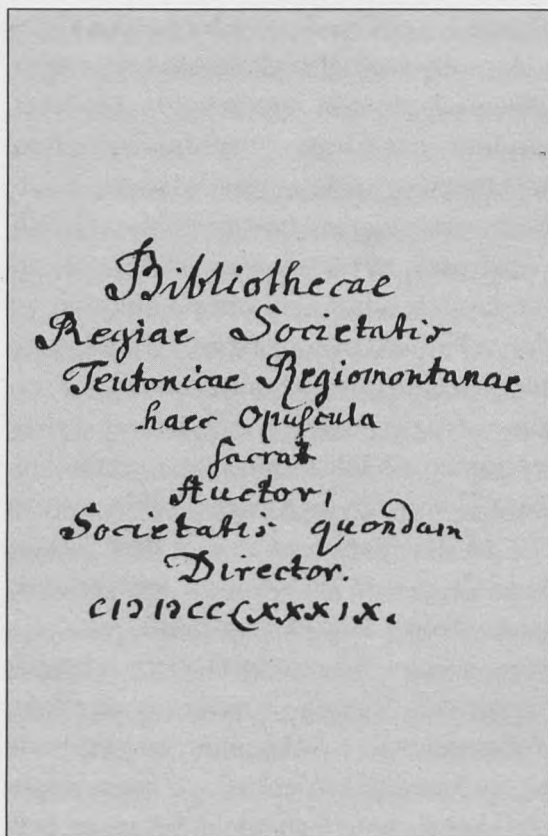 Bibliothecae
Regiae Societatis
Teutonicae Regiomontanae
haec Opuſcula
ſacrat
Auctor,
Societatis quondam
Director.
CIƆIƆCCLXXXIX.